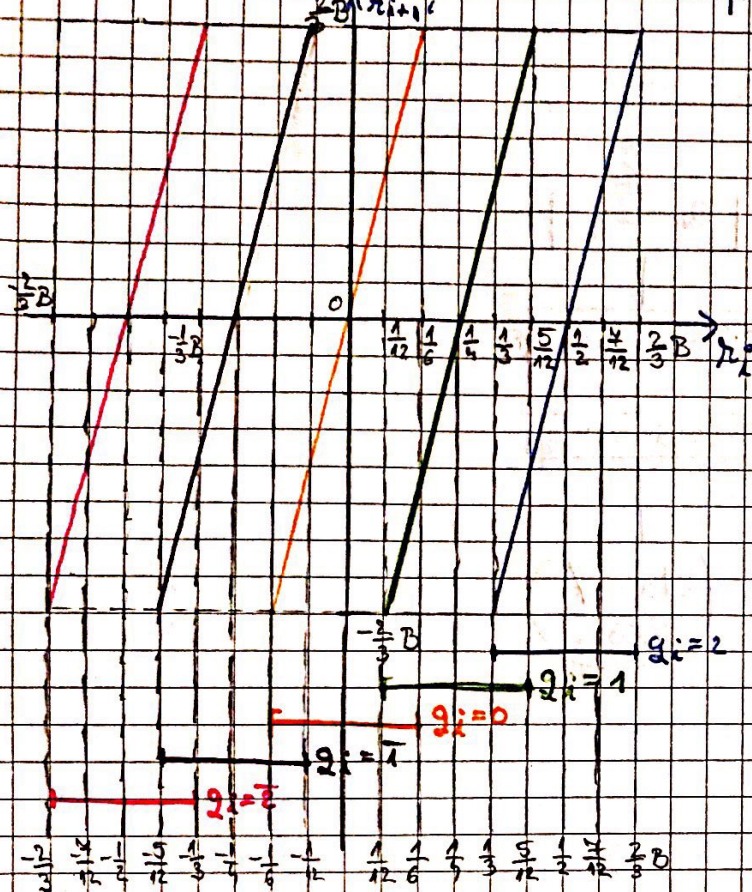 2/3 B r_{i+1}
-2/3 B 0
-1/3 B 1/12 1/6 1/4 1/3 5/12 1/2 7/12 2/3 B r_i
-2/3 B
q_i=2
q_i=1
q_i=0
q_i=1̅
q_i=2̅
-2/3 -7/12 -1/2 -5/12 -1/3 -1/4 -1/6 -1/12 1/12 1/6 1/4 1/3 5/12 1/2 7/12 2/3 B